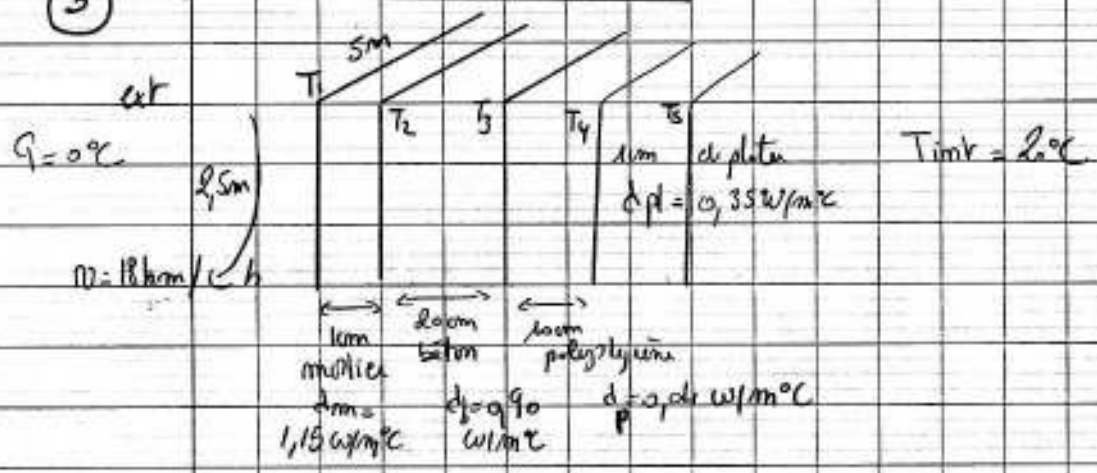 3
5m
ext
T1
T2
T3
T4
T5
= 0°C
2,5m
1cm de platre
Tint = 20°C
λpl = 0,35 W/m°C
v = 18 km/h
1cm
mortier
20cm
béton
10cm
polystyrène
λm =
1,15 W/m°C
λb = 0,90
W/m°C
W/m°C